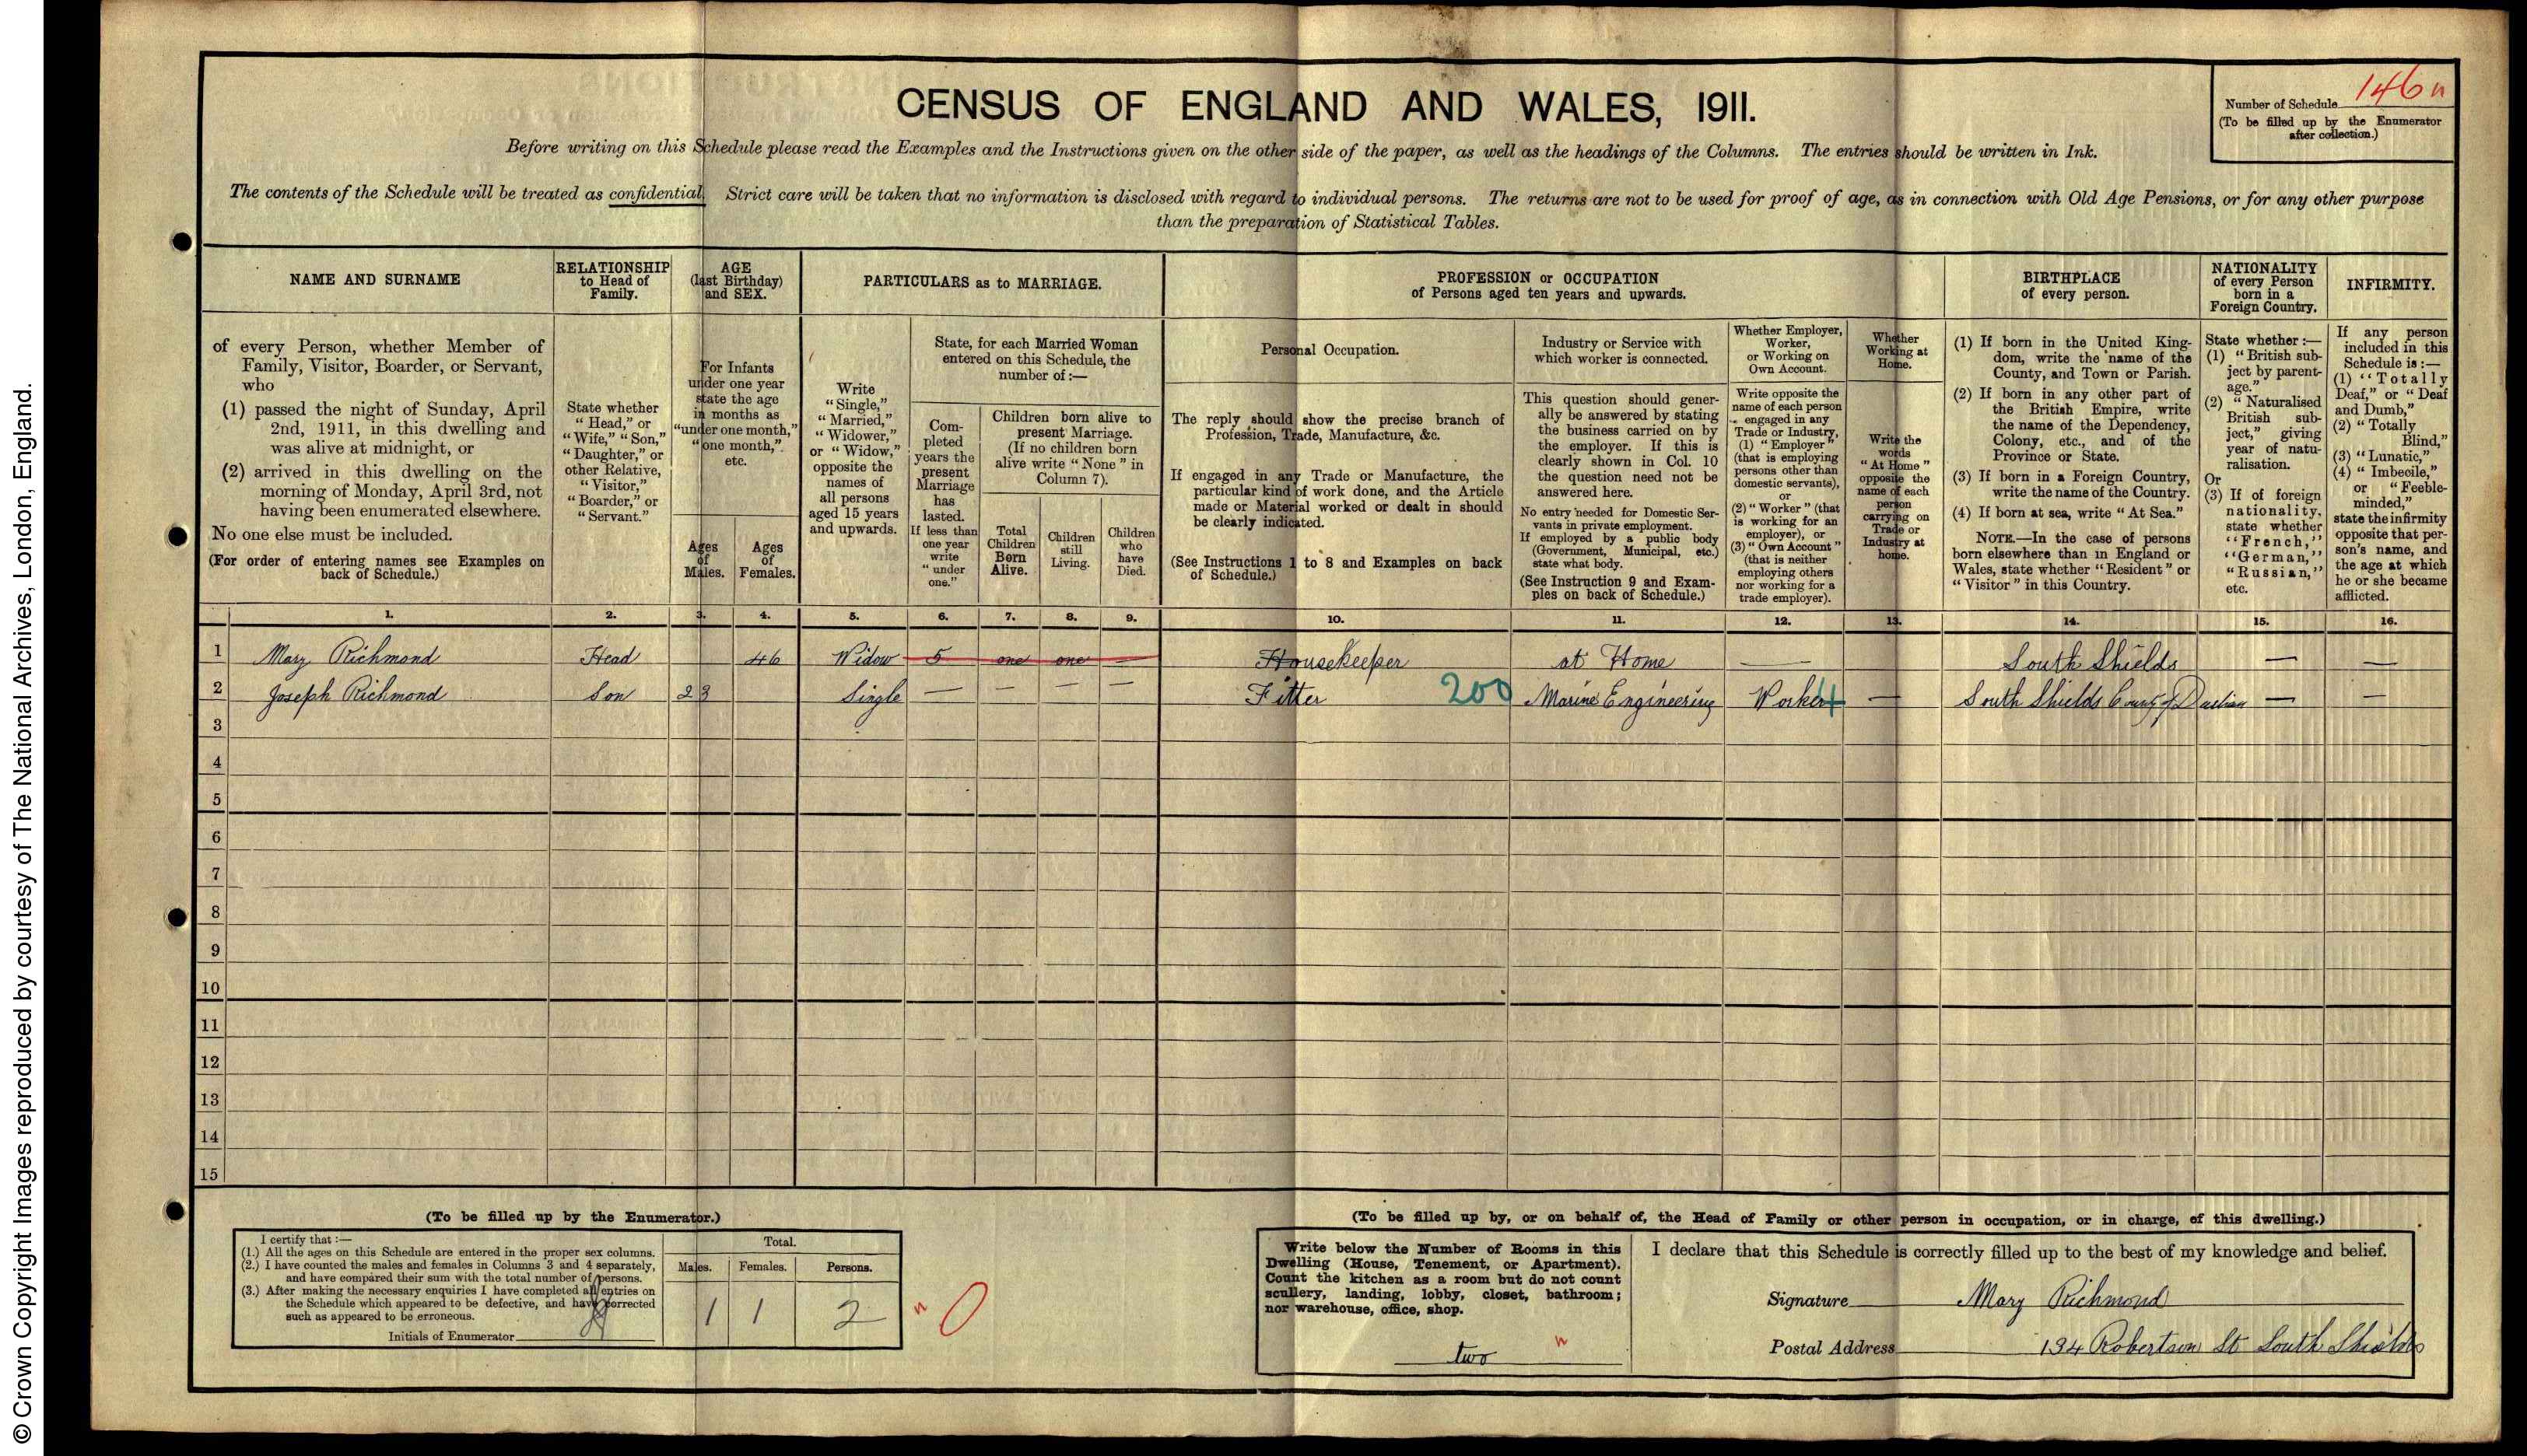 © Crown Copyright Images reproduced by courtesy of The National Archives, London, England.
CENSUS OF ENGLAND AND WALES, 1911.
Number of Schedule 146
(To be filled up by the Enumerator
after collection.)
Before writing on this Schedule please read the Examples and the Instructions given on the other side of the paper, as well as the headings of the Columns. The entries should be written in Ink.
The contents of the Schedule will be treated as confidential. Strict care will be taken that no information is disclosed with regard to individual persons. The returns are not to be used for proof of age, as in connection with Old Age Pensions, or for any other purpose
than the preparation of Statistical Tables.
NAME AND SURNAME
of every Person, whether Member of
Family, Visitor, Boarder, or Servant,
who
(1) passed the night of Sunday, April
2nd, 1911, in this dwelling and
was alive at midnight, or
(2) arrived in this dwelling on the
morning of Monday, April 3rd, not
having been enumerated elsewhere.
No one else must be included.
(For order of entering names see Examples on
back of Schedule.)
RELATIONSHIP
to Head of
Family.
State whether
"Head," or
"Wife," "Son,"
"Daughter," or
other Relative,
"Visitor,"
"Boarder," or
"Servant."
AGE
(last Birthday)
and SEX.
For Infants
under one year
state the age
in months as
"under one month,"
"one month,"
etc.
Ages
of
Males.
Ages
of
Females.
PARTICULARS as to MARRIAGE.
Write
"Single,"
"Married,"
"Widower,"
or "Widow,"
opposite the
names of
all persons
aged 15 years
and upwards.
State, for each Married Woman
entered on this Schedule, the
number of :—
Com-
pleted
years the
present
Marriage
has
lasted.
If less than
one year
write
"under
one."
Children born alive to
present Marriage.
(If no children born
alive write "None" in
Column 7).
Total
Children
Born
Alive.
Children
still
Living.
Children
who
have
Died.
PROFESSION or OCCUPATION
of Persons aged ten years and upwards.
Personal Occupation.
The reply should show the precise branch of
Profession, Trade, Manufacture, &c.
If engaged in any Trade or Manufacture, the
particular kind of work done, and the Article
made or Material worked or dealt in should
be clearly indicated.
(See Instructions 1 to 8 and Examples on back
of Schedule.)
Industry or Service with
which worker is connected.
This question should gener-
ally be answered by stating
the business carried on by
the employer. If this is
clearly shown in Col. 10
the question need not be
answered here.
No entry needed for Domestic Ser-
vants in private employment.
If employed by a public body
(Government, Municipal, etc.)
state what body.
(See Instruction 9 and Exam-
ples on back of Schedule.)
Whether Employer,
Worker,
or Working on
Own Account.
Write opposite the
name of each person
engaged in any
Trade or Industry,
(1) "Employer"
(that is employing
persons other than
domestic servants),
or
(2) "Worker" (that
is working for an
employer), or
(3) "Own Account"
(that is neither
employing others
nor working for a
trade employer).
Whether
Working at
Home.
Write the
words
"At Home"
opposite the
name of each
person
carrying on
Trade or
Industry at
home.
BIRTHPLACE
of every person.
(1) If born in the United King-
dom, write the name of the
County, and Town or Parish.
(2) If born in any other part of
the British Empire, write
the name of the Dependency,
Colony, etc., and of the
Province or State.
(3) If born in a Foreign Country,
write the name of the Country.
(4) If born at sea, write "At Sea."
NOTE.—In the case of persons
born elsewhere than in England or
Wales, state whether "Resident" or
"Visitor" in this Country.
NATIONALITY
of every Person
born in a
Foreign Country.
State whether :—
(1) "British sub-
ject by parent-
age."
(2) "Naturalised
British sub-
ject," giving
year of natu-
ralisation.
Or
(3) If of foreign
nationality,
state whether
"French,"
"German,"
"Russian,"
etc.
INFIRMITY.
If any person
included in this
Schedule is :—
(1) "Totally
Deaf," or "Deaf
and Dumb,"
(2) "Totally
Blind,"
(3) "Lunatic,"
(4) "Imbecile,"
or "Feeble-
minded,"
state the infirmity
opposite that per-
son's name, and
the age at which
he or she became
afflicted.
1. 2. 3. 4. 5. 6. 7. 8. 9. 10. 11. 12. 13. 14. 15. 16.
1 Mary Richmond Head 46 Widow 5 one one — Housekeeper at Home — South Shields — —
2 Joseph Richmond Son 23 Single — — — — Fitter 200 Marine Engineering Worker — South Shields County of — —
3
4
5
6
7
8
9
10
11
12
13
14
15
(To be filled up by the Enumerator.)
I certify that :—
(1.) All the ages on this Schedule are entered in the proper sex columns.
(2.) I have counted the males and females in Columns 3 and 4 separately,
and have compared their sum with the total number of persons.
(3.) After making the necessary enquiries I have completed all entries on
the Schedule which appeared to be defective, and have corrected
such as appeared to be erroneous.
Initials of Enumerator
Total.
Males. Females. Persons.
1 1 2
0
(To be filled up by, or on behalf of, the Head of Family or other person in occupation, or in charge, of this dwelling.)
Write below the Number of Rooms in this
Dwelling (House, Tenement, or Apartment).
Count the kitchen as a room but do not count
scullery, landing, lobby, closet, bathroom;
nor warehouse, office, shop.
two
I declare that this Schedule is correctly filled up to the best of my knowledge and belief.
Signature Mary Richmond
Postal Address 134 Robertson St South Shields